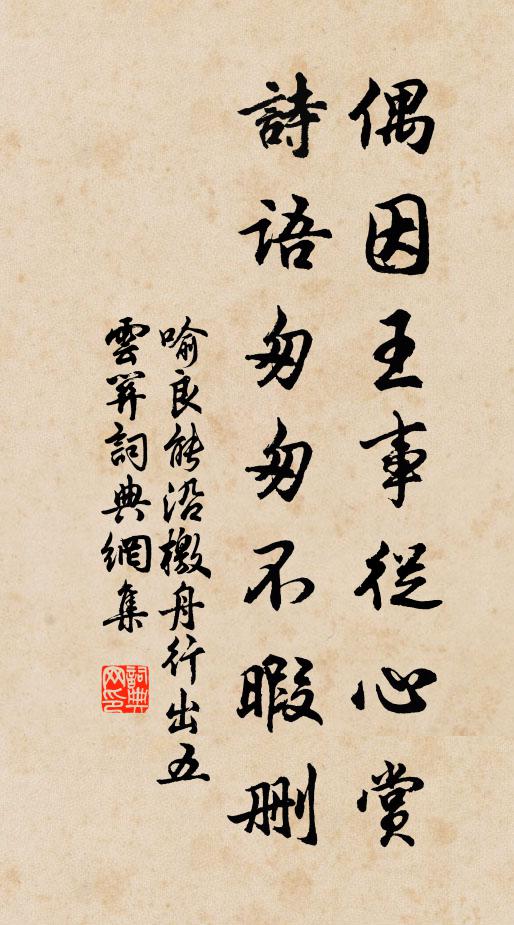 偶因王事從心賞
詩語匆匆不暇删
喻良能沿檄舟行出五
雲笄詞典網集
詞典网印